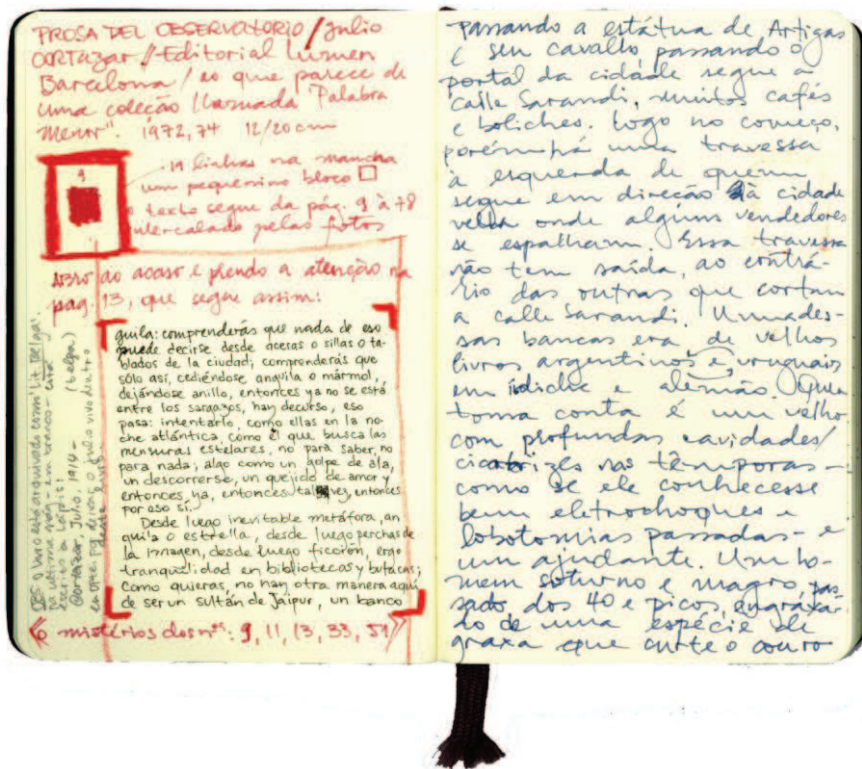 PROSA DEL OBSERVATORIO / Julio
CORTÁZAR // Editorial Lumen
Barcelona / eo que parece de
uma coleção llamada "Palabra
Menor". 1972, 74 12/20 cm
9
19 linhas na mancha
um pequenino bloco
o texto segue da pág. 9 à 78
intercalado pelas fotos
ABRO ao acaso e prendo a atenção na
pag. 13, que segue assim:
guila: comprenderás que nada de eso
puede decirse desde aceras o sillas o ta-
blados de la ciudad; comprenderás que
sólo así, cediéndose anguila o mármol,
dejándose anillo, entonces ya no se está
entre los sargazos, hay decurso, eso
pasa: intentarlo, como ellas en la no-
che atlántica, como el que busca las
mensuras estelares, no para saber, no
para nada; algo como un golpe de ala,
un descorrerse, un quejido de amor y
entonces ya, entonces tal vez, entonces
por eso sí.
Desde luego inevitable metáfora, an
guila o estrella, desde luego perchas de
la imagen, desde luego ficción, ergo
tranquilidad en bibliotecas y butacas;
como quieras, no hay otra manera aquí
de ser un sultán de Jaipur, un banco
«o mistérios dos nºs: 9, 11, 13, 33, 51»
OBS: o livro está arquivado com lit. belga.
na última pág - em branco - está
escrito a lápis:
Cortázar, Julio. 1914 - (belga)
en vivo dentro
passando a estátua de Artigas
e seu cavalo, passando o
portal da cidade segue a
calle Sarandi, muitos cafés
e boliches. Logo no começo,
porém há uma travessa
à esquerda de quem
segue em direção à cidade
velha onde alguns vendedores
se espalham. Essa travessa
não tem saída, ao contrá-
rio das outras que cortam
a calle Sarandi. Uma des-
sas bancas era de velhos
livros argentinos e, uruguaios
em ídiche e alemão. Quem
toma conta é um velho
com profundas cavidades/
cicatrizes nas têmporas -
como se ele conhecesse
bem eletrochoques e
lobotomias passadas - e
um ajudante. Um ho-
mem soturno e magro, pas
sado dos 40 e picos, engraxa
do de uma espécie de
graxa que curte o couro